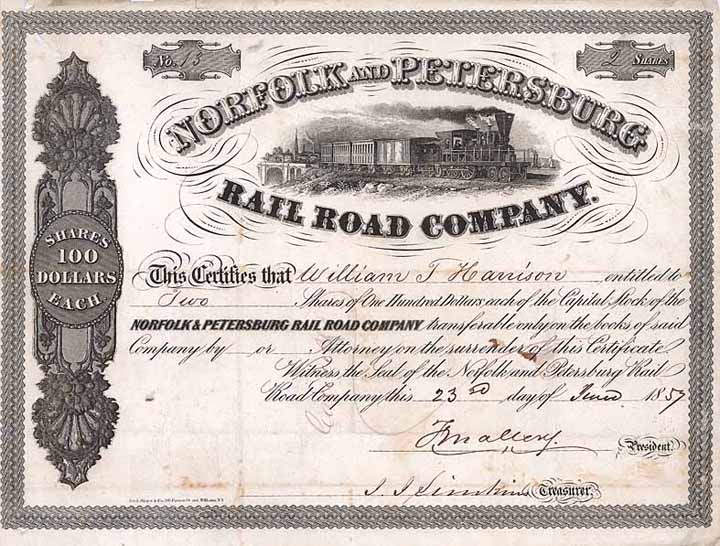 No. 13
2 SHARES
NORFOLK AND PETERSBURG
RAIL ROAD COMPANY.
SHARES
100
DOLLARS
EACH
This Certifies that William T Harrison entitled to
Two Shares of One Hundred Dollars each of the Capital Stock of the
NORFOLK & PETERSBURG RAIL ROAD COMPANY transferable only on the books of said
Company by or Attorney on the surrender of this Certificate.
Witness the Seal of the Norfolk and Petersburg Rail
Road Company this 23rd day of June 1857
F Mallory
President.
Treasurer.